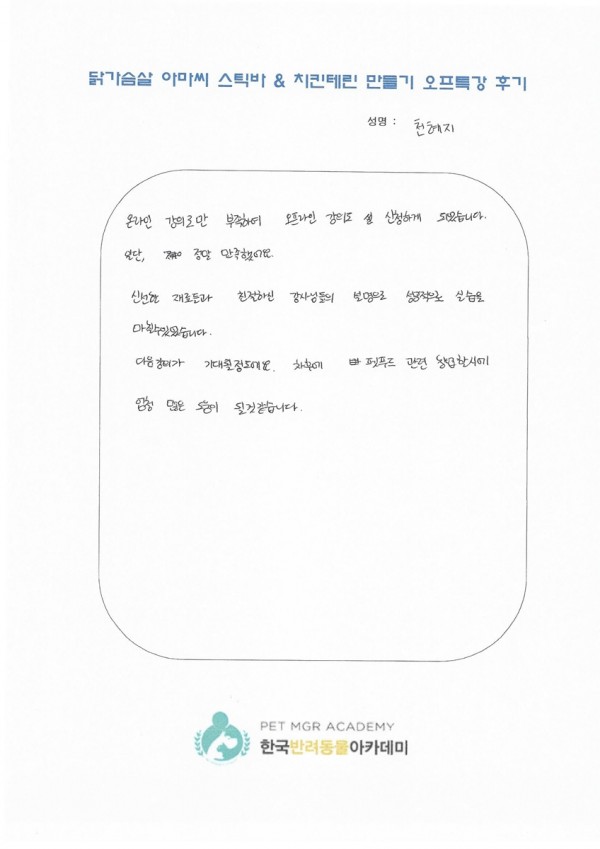 닭가슴살 아마씨 스틱바 & 치킨테린 만들기 오프특강 후기
성명 : 천혜지
온라인 강의로만 부족하여 오프라인 강의도 신청하게 되었습니다.
일단, 정말 만족했어요.
신선한 재료들과 친절하신 강사님들의 보명으로 성공적으로 실습을
마칠수있었습니다.
다음강의가 기대될정도에요. 차후에 펫푸드 관련 창업할시에
엄청 많은 도움이 될것같습니다.
PET MGR ACADEMY
한국반려동물아카데미